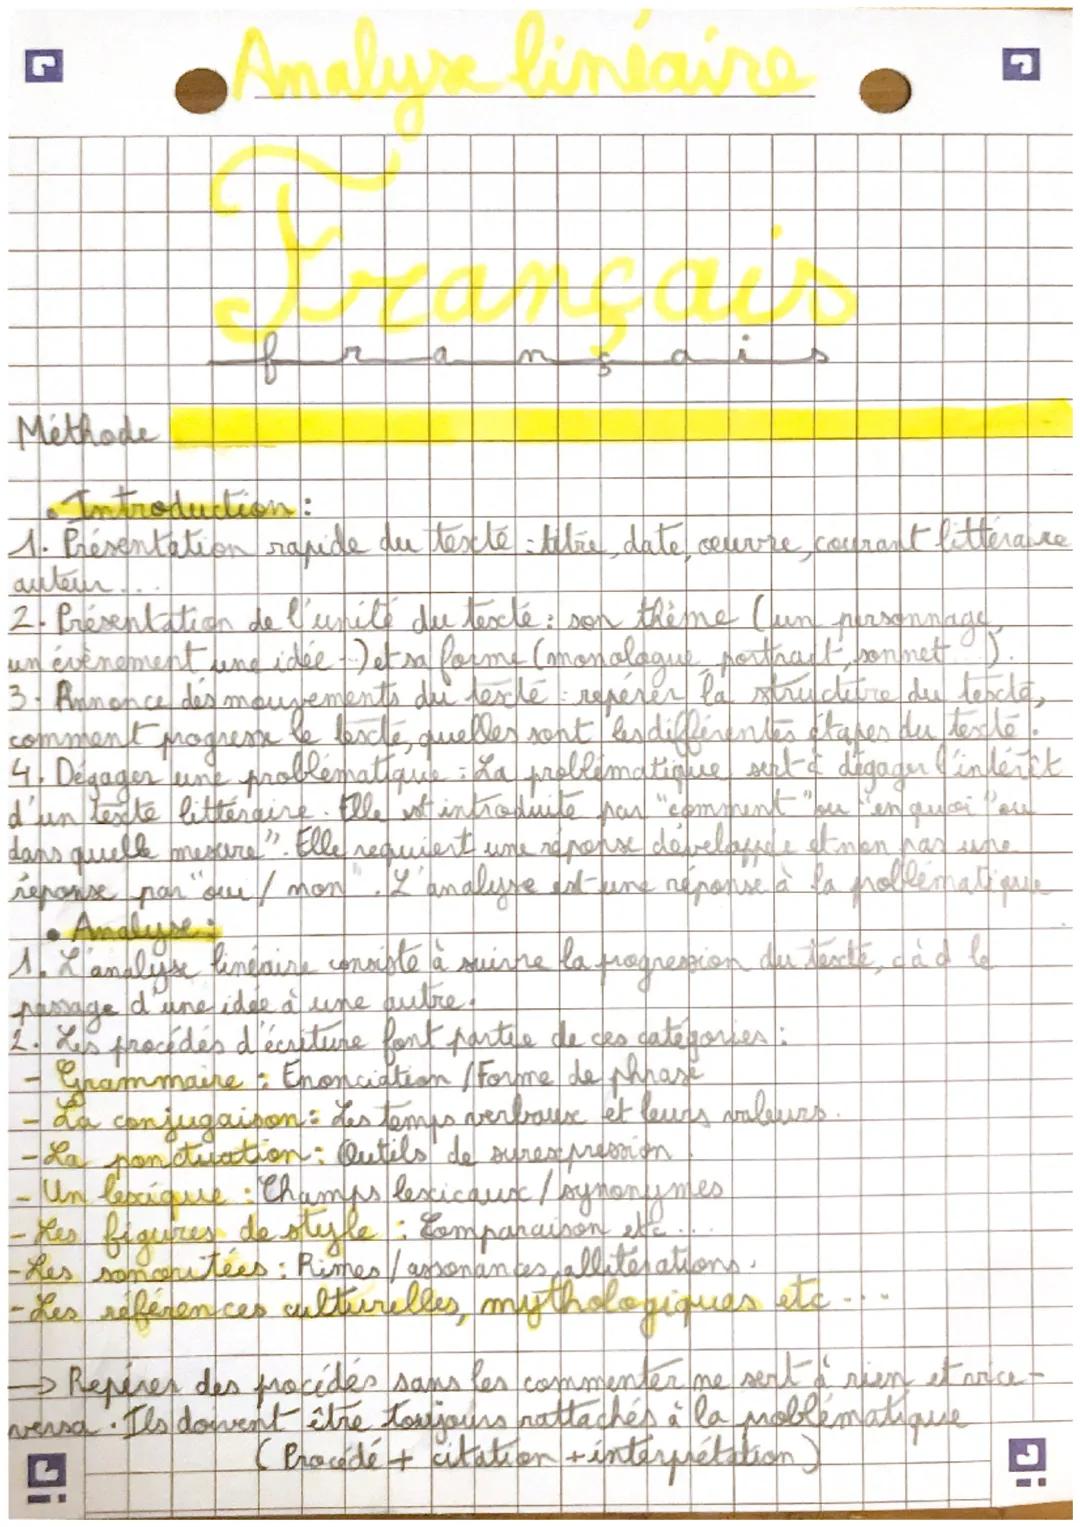 Analyse linéaire
Français
français
Méthode
• Introduction :
1. Présentation rapide du texte : titre, date, œuvre, courant littéraire
auteur...
2. Présentation de l'unité du texte : son thème (un personnage,
un évènement une idée...) et sa forme (monologue portrait, sonnet...).
3. Annonce des mouvements du texte : repérer la structure du texte,
comment progresse le texte, quelles sont les différentes étapes du texte.
4. Dégager une problématique : La problématique sert à dégager l'intérêt
d'un texte littéraire. Elle est introduite par "comment" ou "en quoi" ou
dans quelle mesure". Elle requiert une réponse développée et non pas une
réponse par "oui / non". L'analyse est une réponse à la problématique
• Analyse :
1. L'analyse linéaire consiste à suivre la progression du texte, càd le
passage d'une idée à une autre.
2. Les procédés d'écriture font partie de ces catégories :
- Grammaire : Enonciation / Forme de phrase
- La conjugaison : Les temps verbaux et leurs valeurs.
- La ponctuation : Outils de surexpression.
- Un lexique : Champs lexicaux / synonymes
- Les figures de style : Comparaison etc...
- Les sonoritées : Rimes / assonances, allitérations.
- Les références culturelles, mythologiques etc...
→ Repérer des procédés sans les commenter ne sert à rien et vice-
versa. Ils doivent être toujours rattachés à la problématique
(Procédé + citation + interprétation)